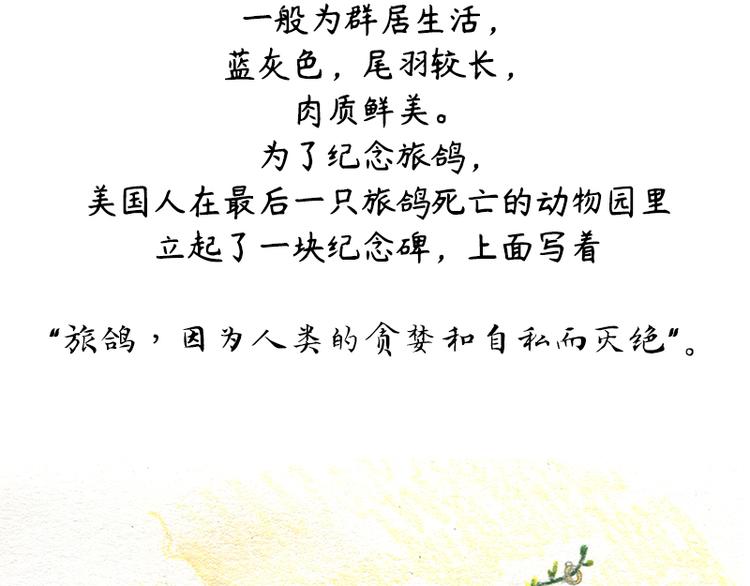 一般为群居生活，
蓝灰色，尾羽较长，
肉质鲜美。
为了纪念旅鸽，
美国人在最后一只旅鸽死亡的动物园里
立起了一块纪念碑，上面写着
“旅鸽，因为人类的贪婪和自私而灭绝”。